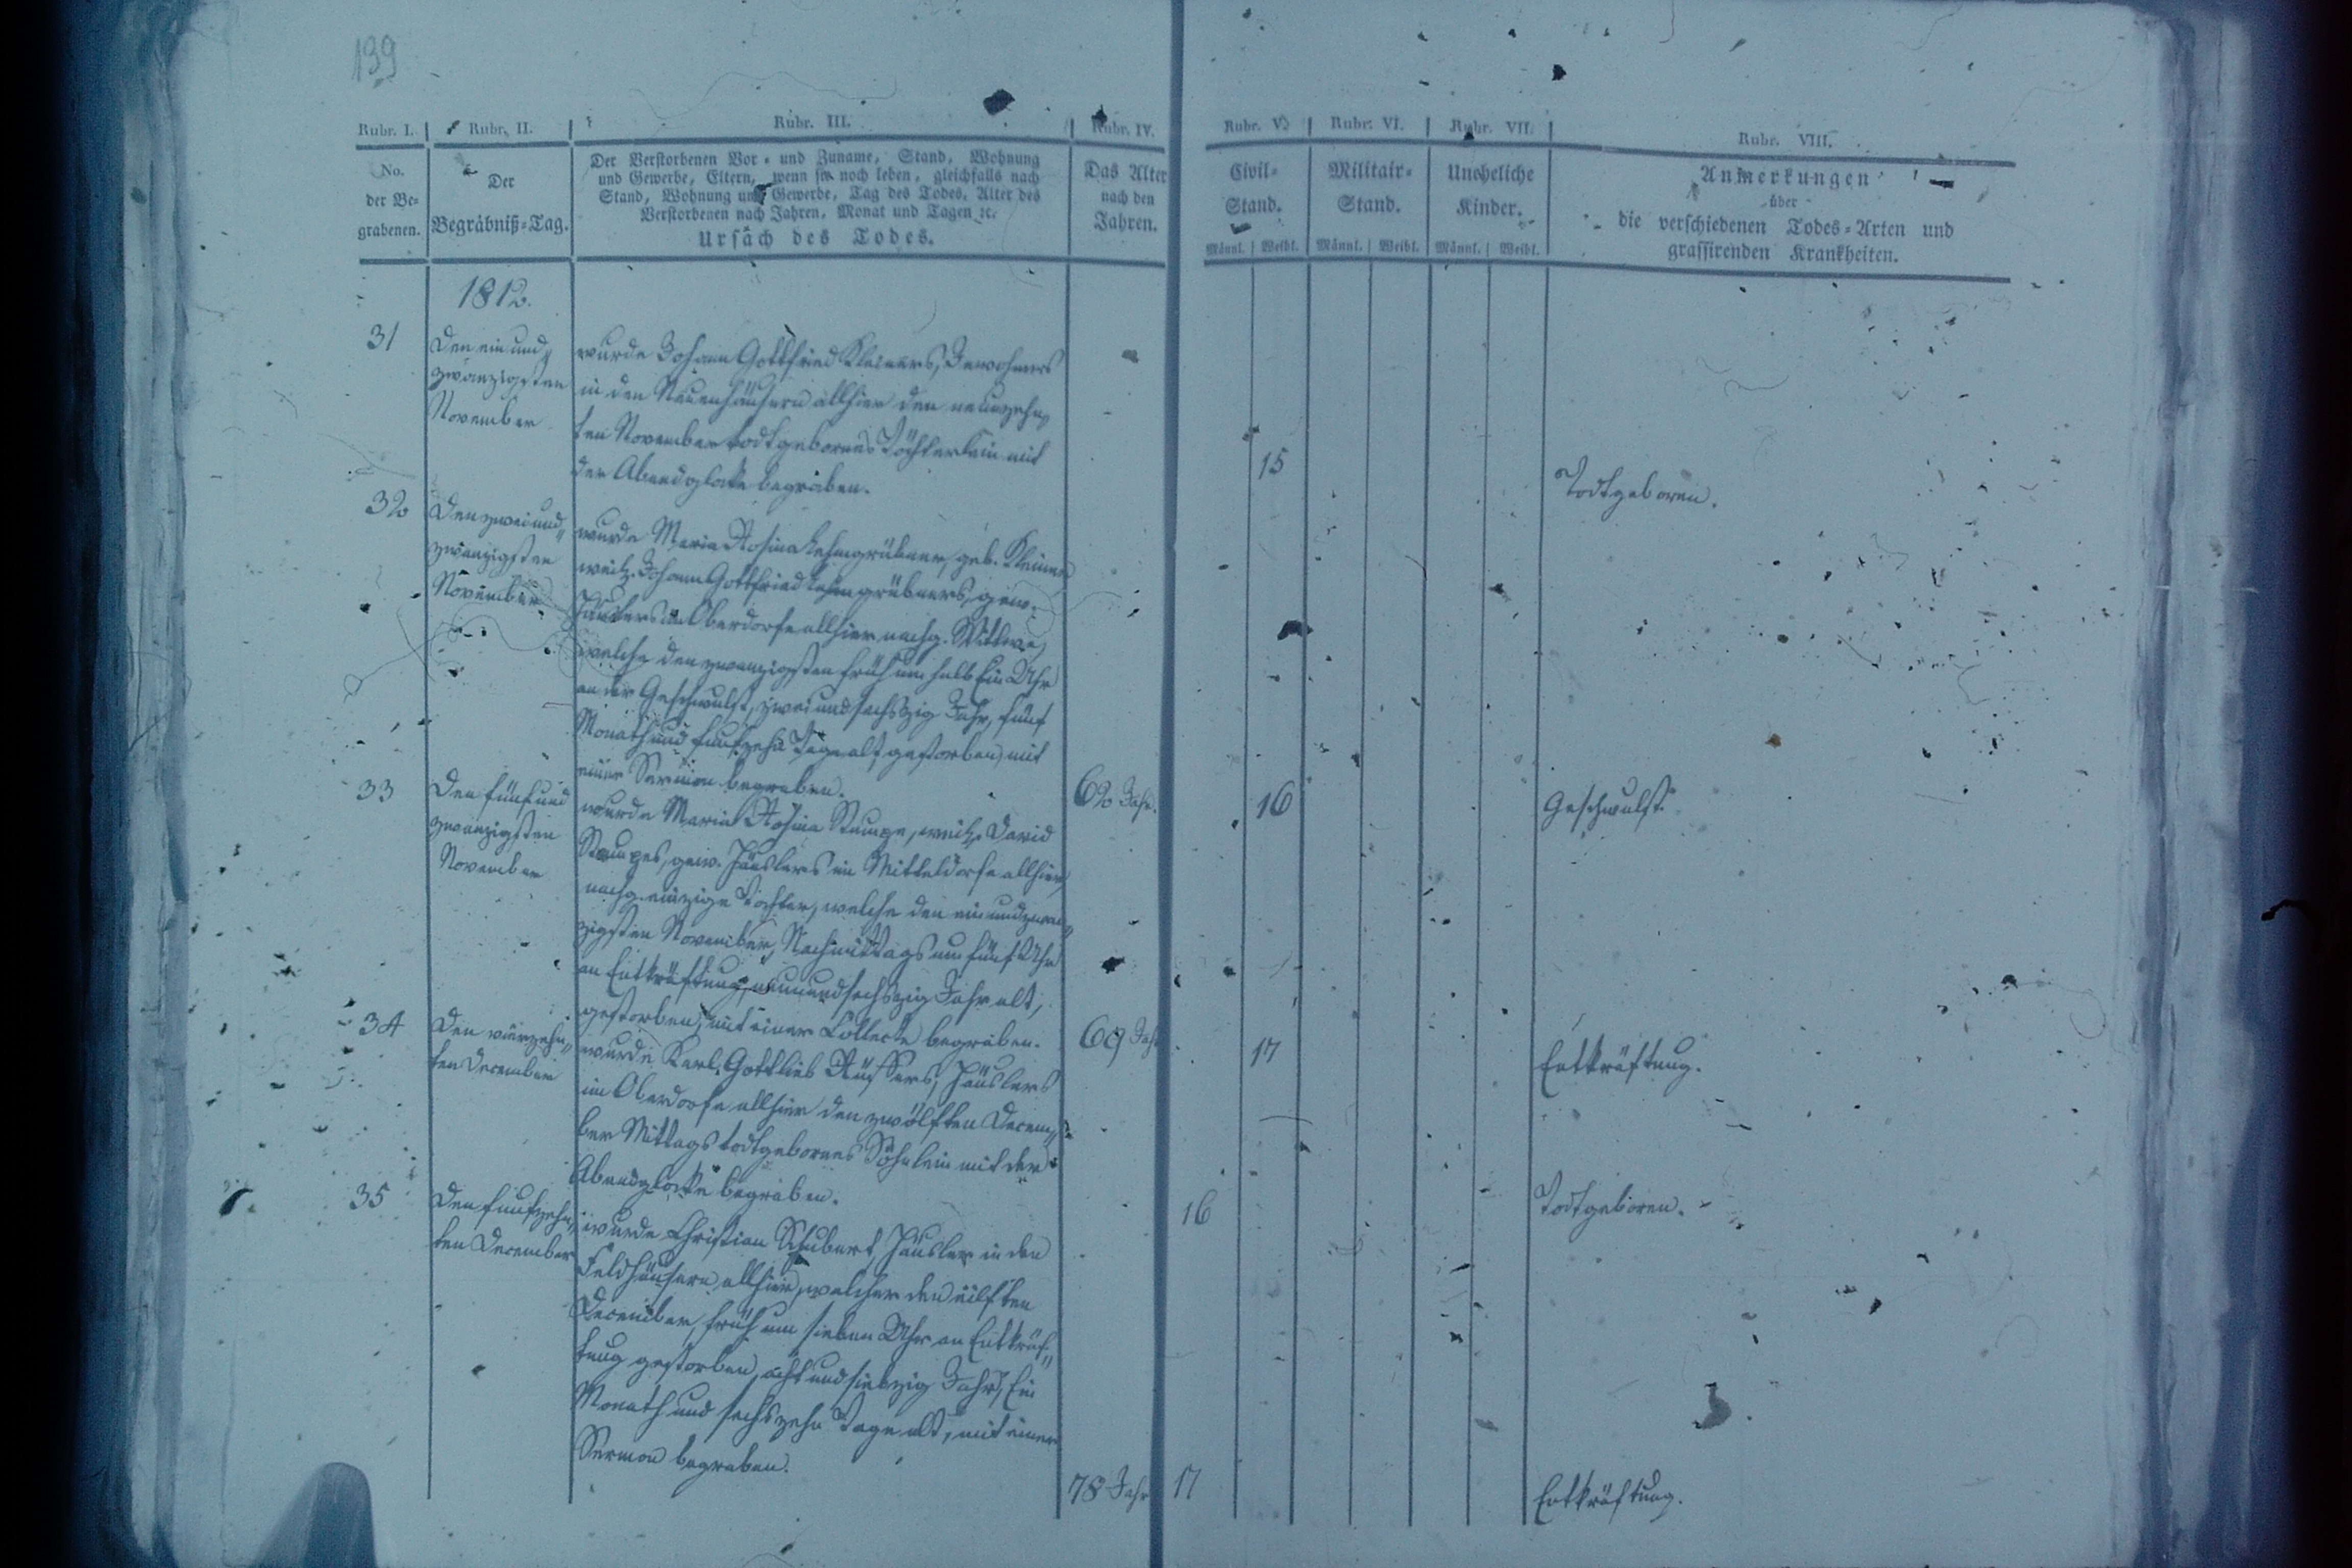 139
Rubr. I. Rubr. II. Rubr. III. Rubr. IV. Rubr. V. Rubr. VI. Rubr. VII. Rubr. VIII.
No.
der Be-
grabenen.
Der
Begräbniß-Tag.
Der Verstorbenen Vor- und Zuname, Stand, Wohnung
und Gewerbe, Eltern, wenn sie noch leben, gleichfalls nach
Stand, Wohnung und Gewerbe, Tag des Todes, Alter des
Verstorbenen nach Jahren, Monat und Tagen ꝛc.
Ursach des Todes.
Das Alter
nach den
Jahren.
Civil-
Stand.
Männl. Weibl.
Militair-
Stand.
Männl. Weibl.
Uneheliche
Kinder.
Männl. Weibl.
Anmerkungen
über
die verschiedenen Todes-Arten und
grassirenden Krankheiten.
1812.
31
Den ein und
zwanzigsten
November
wurde Johann Gottfried Kleiners, Inwohners
in den Neuenhäusern allhier den neunzehn
ten November todtgebornes Töchterlein mit
der Abendglocke begraben.
15
Todtgeboren.
32
Den zweiund
zwanzigsten
November
wurde Maria Rosina Lehmgrübner, geb. Kleiner
weil. Johann Gottfried Lehmgrübners, gew.
Häuslers im Oberdorfe allhier nachg. Wittwe,
welche den zwanzigsten früh um halb Ein Uhr
an der Geschwulst, zwei und sechszig Jahr, fünf
Monath und funfzehn Tage alt gestorben, mit
einer Sermon begraben.
62 Jahr.
16
Geschwulst.
33
Den fünf und
zwanzigsten
November
wurde Maria Rosina Stumpe, weil. David
Stumpes, gew. Häuslers im Mitteldorfe allhier,
nachg. einzige Tochter, welche den ein und zwan
zigsten November, Nachmittags um fünf Uhr
an Entkräftung, neun und sechszig Jahr alt,
gestorben, mit einer Collecte begraben.
69 Jahr
17
Entkräftung.
34
Den vierzehn
ten December
wurde Karl Gottlieb Häuslers
im Oberdorfe allhier den zwölften Decem
ber Mittags todtgebornes Söhnlein mit der
Abendglocke begraben.
16
Todtgeboren.
35
Den funfzehn
ten December
wurde Christian Schubert, Häusler in den
Feldhäusern allhier, welcher den eilften
December, früh um sieben Uhr an Entkräf
tung gestorben, acht und siebzig Jahr, Ein
Monath und sechszehn Tage alt, mit einer
Sermon begraben.
78 Jahr
17
Entkräftung.